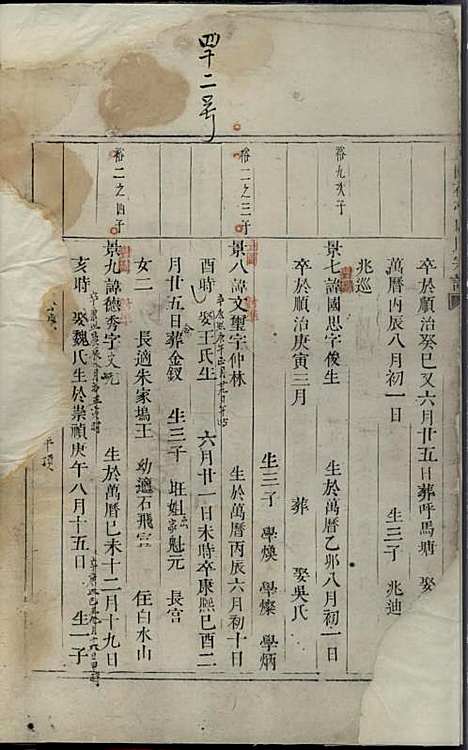 四十二号
卒於順治癸巳又六月廿五日葬呼馬塘 娶
萬曆丙辰八月初一日 生三子 兆迪
兆巡
裕九次子
景七諱國思字俊生 生於萬曆乙卯八月初一日
卒於順治庚寅三月 葬 娶吳氏
生三子 學煥 學燦 學炳
裕二之三子
景八諱文璽字仲林 生於萬曆丙辰六月初十日
酉時 娶王氏生 六月廿一日未時卒康熙己酉二
月廿五日葬金釵 生三子 旺姓 魁元 長宮
女二 長適朱家塢王 幼適石飛雲 住白水山
裕二之四子
景九諱德秀字文 生於萬曆己未十二月十九日
亥時 娶魏氏生於崇禎庚午八月十五日 生一子